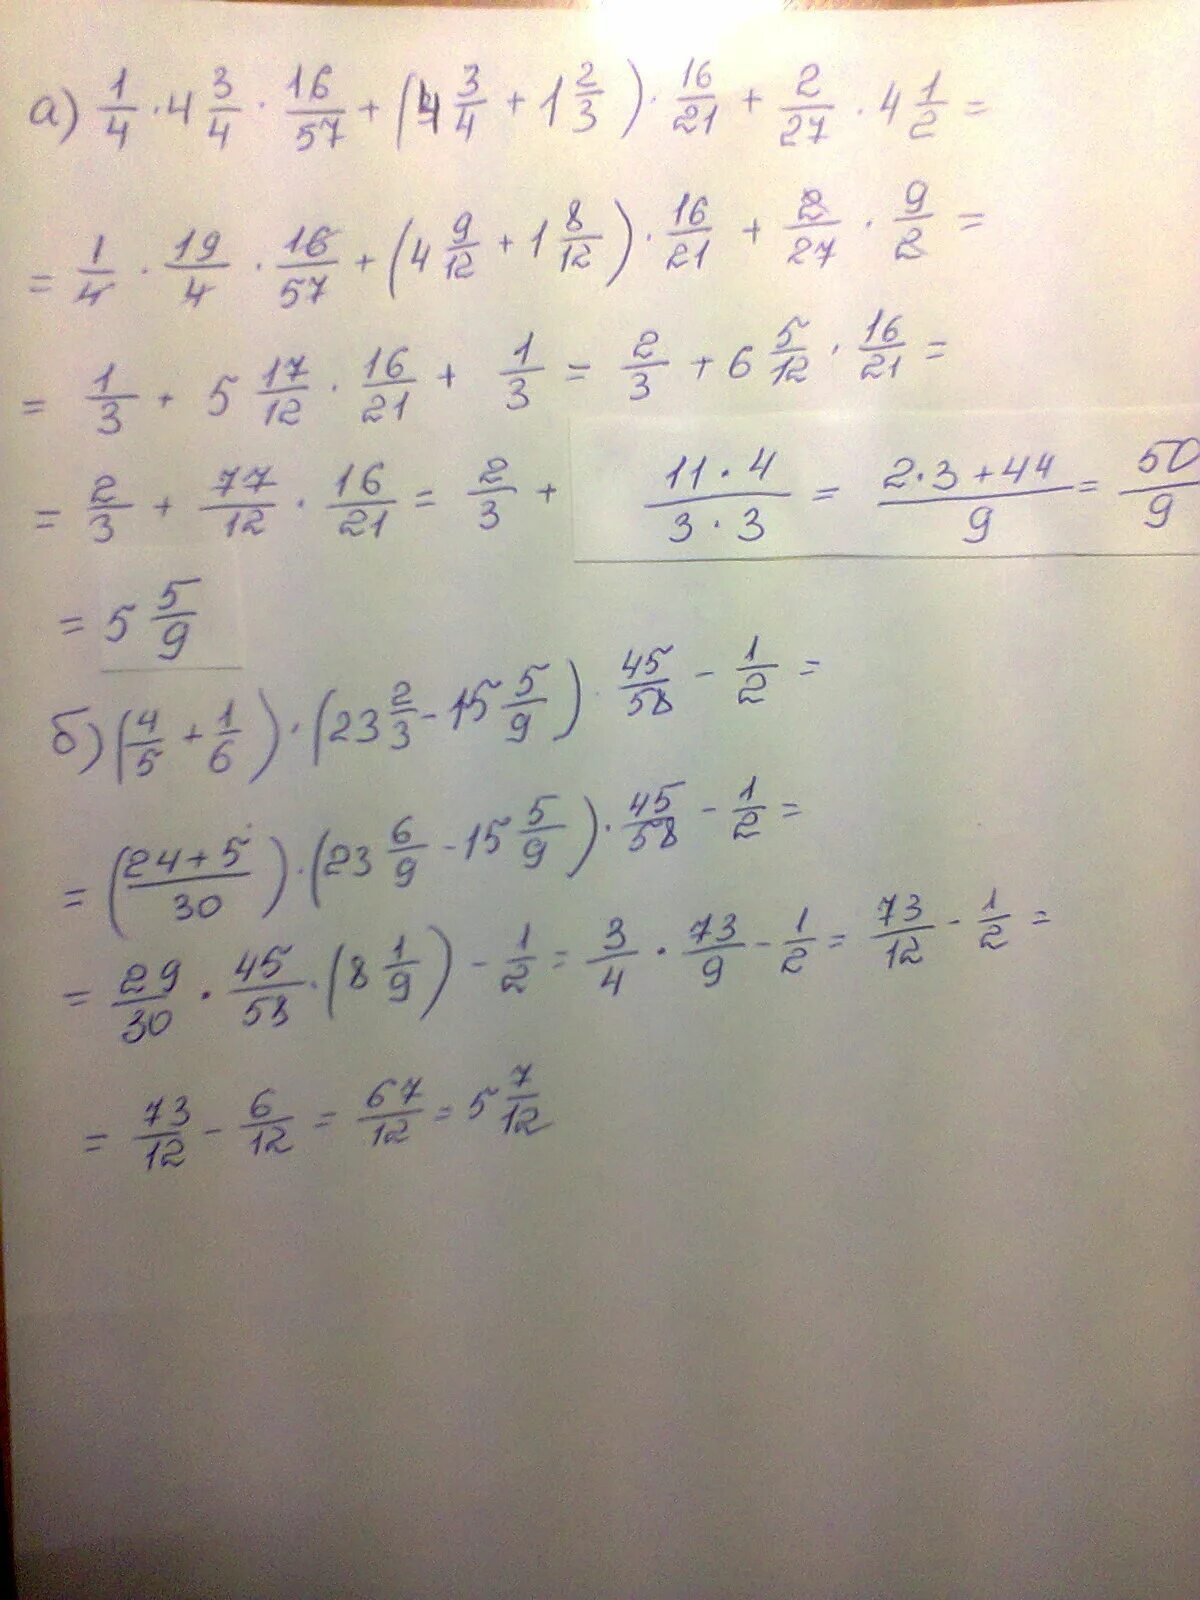 а) 1/4 · 4 3/4 · 16/57 + (4 3/4 + 1 2/3) · 16/21 + 2/27 · 4 1/2 =
= 1/4 · 19/4 · 16/57 + (4 9/12 + 1 8/12) · 16/21 + 2/27 · 9/2 =
= 1/3 + 5 17/12 · 16/21 + 1/3 = 2/3 + 6 5/12 · 16/21 =
= 2/3 + 77/12 · 16/21 = 2/3 + 11·4/3·3 = 2·3+44/9 = 50/9
= 5 5/9
б) (4/5 + 1/6) · (23 2/3 - 15 5/9) · 45/58 - 1/2 =
= (24+5/30) · (23 6/9 - 15 5/9) · 45/58 - 1/2 =
= 29/30 · 45/58 · (8 1/9) - 1/2 = 3/4 · 73/9 - 1/2 = 73/12 - 1/2 =
= 73/12 - 6/12 = 67/12 = 5 7/12